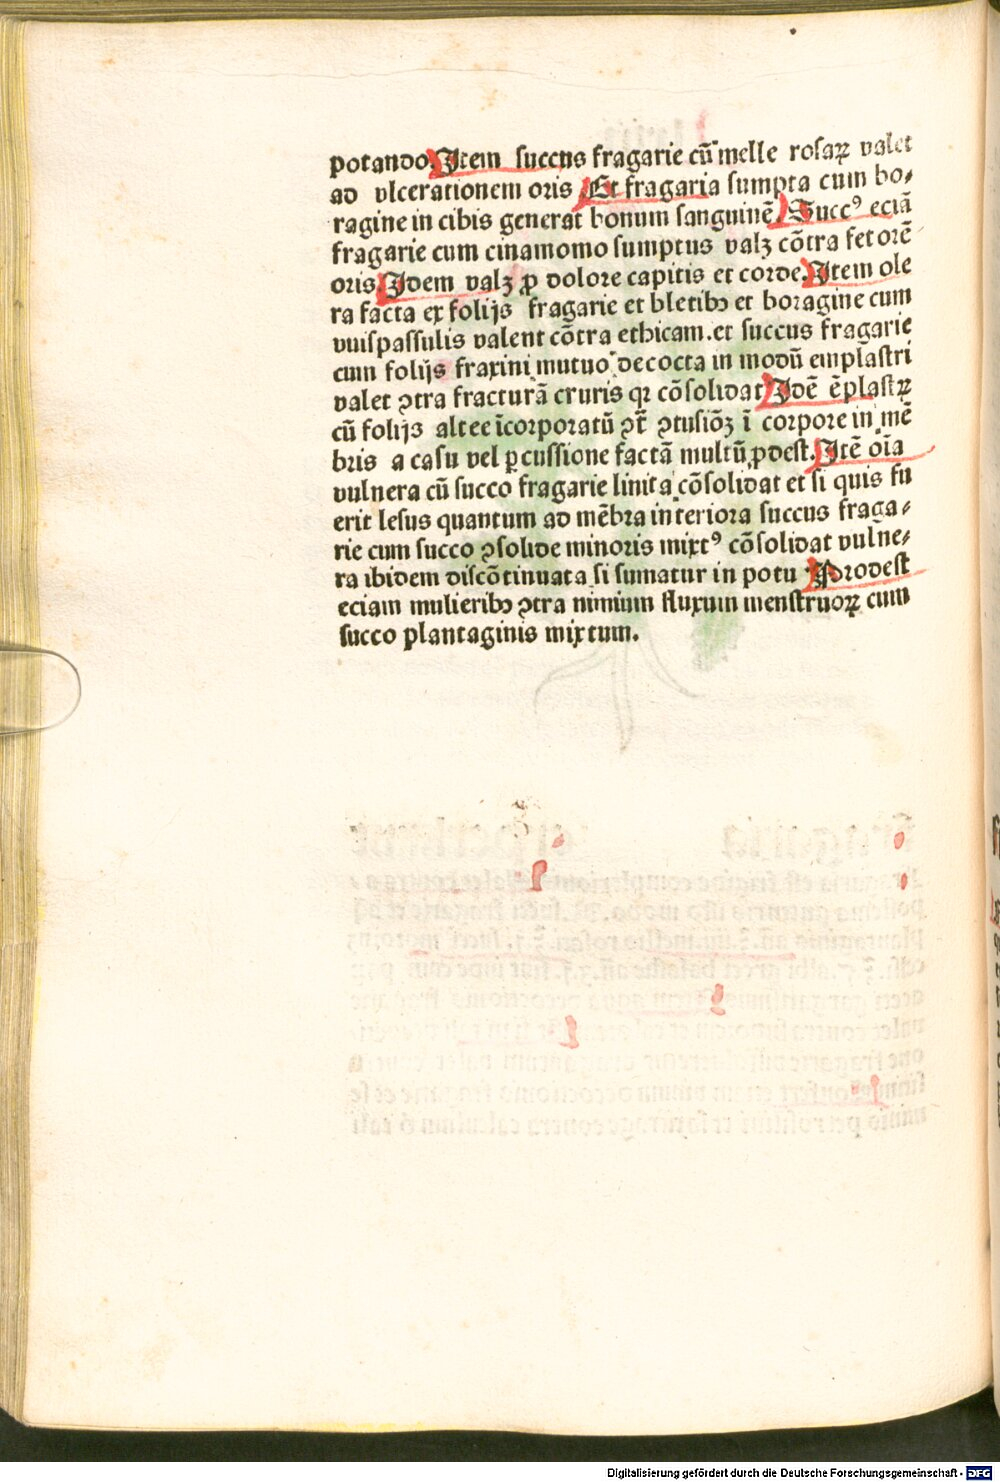 potando. Item succus fragarie cū melle rosaꝝ valet
ad vlcerationem oris Et fragaria sumpta cum bo⸗
ragine in cibis generat bonum sanguinē. Succꝰ eciā
fragarie cum cinamomo sumptus valꝫ cōtra fetorē
oris. Idem valꝫ ꝓ dolore capitis et corde. Item ole
ra facta ex folijs fragarie et bletibꝫ et boragine cum
vuispassulis valent cōtra ethicam. et succus fragarie
cum folijs fraxini mutuo decocta in modū emplastri
valet ꝯtra fracturā cruris qꝛ cōsolidat Idē ēplastꝝ
cū folijs altee īcorporatū ꝯt̄ ꝯtusiōꝫ ī corpore in mē
bris a casu vel ꝑcussione factā multū ꝓdest. Itē oīa
vulnera cū succo fragarie linita cōsolidat et si quis fu
erit lesus quantum ad mēbra interiora succus fraga⸗
rie cum succo ꝯsolide minoris mixtꝰ cōsolidat vulne⸗
ra ibidem discōtinuata si sumatur in potu Prodest
eciam mulieribꝫ ꝯtra nimium fluxum menstruoꝝ cum
succo plantaginis mixtum.
Digitalisierung gefördert durch die Deutsche Forschungsgemeinschaft - DFG